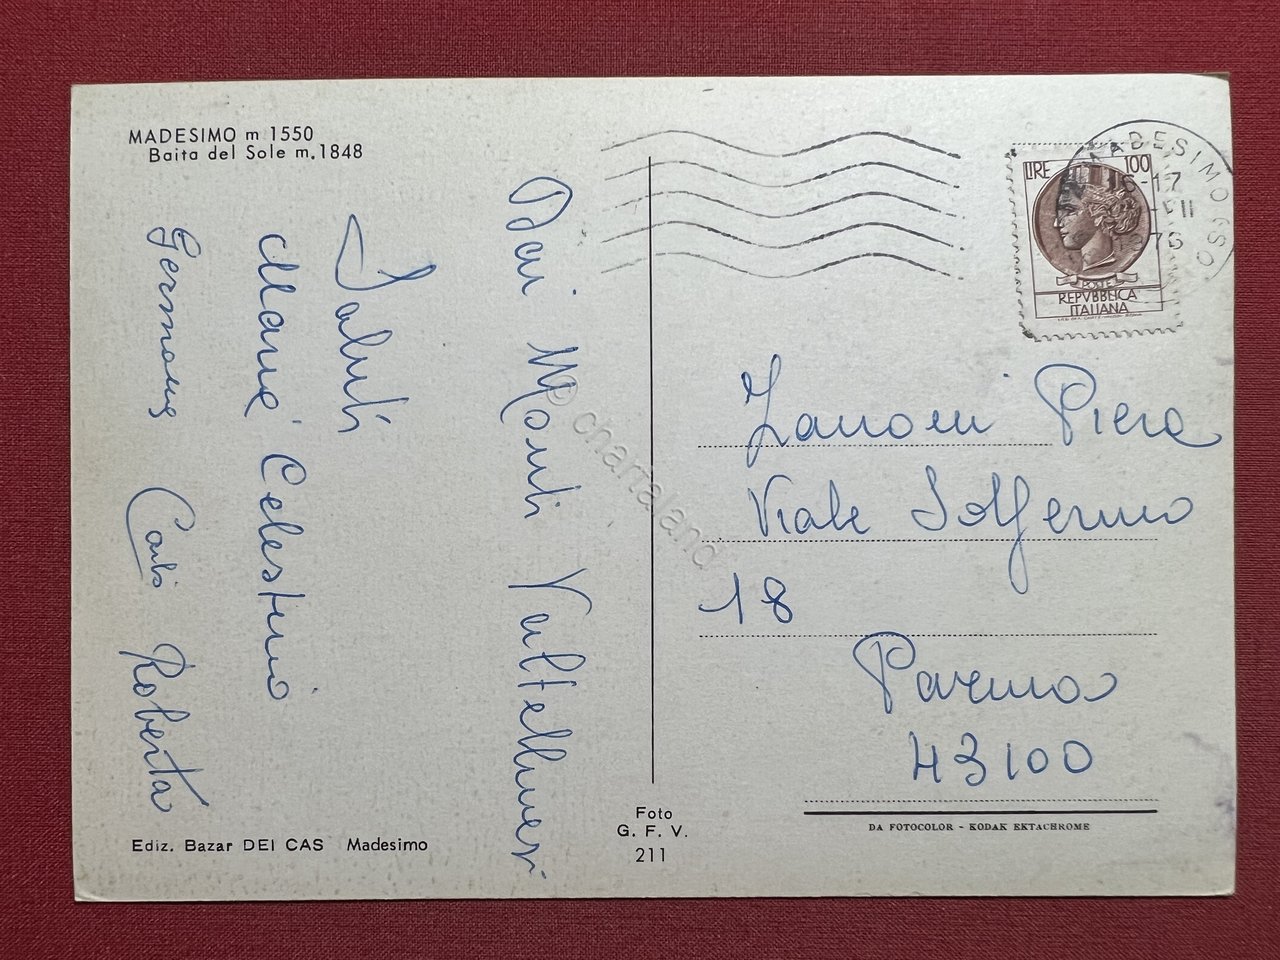 MADESIMO m 1550
Baita del Sole m.1848
Dai Monti Valtellinesi
Saluti
Maria Celestino
Germana Carlo Roberta
Ediz. Bazar DEI CAS Madesimo
Foto
G. F. V.
211
© chartaland
LIRE 100
POSTE
REPVBBLICA
ITALIANA
MADESIMO (SO)
16-17
VII
1976
Zanoni Piera
Viale Solferino
18
Parma
43100
DA FOTOCOLOR - KODAK EKTACHROME